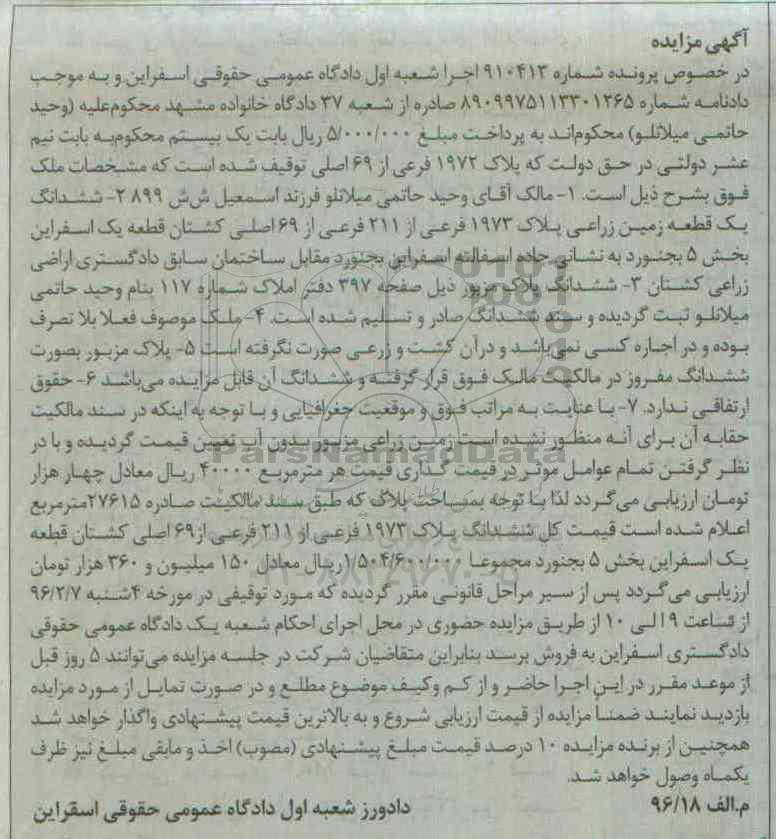 آگهی مزایده
در خصوص پرونده شماره ۹۱۰۴۱۳ اجرا شعبه اول دادگاه عمومی حقوقی اسفراین و به موجب
دادنامه شماره ۸۹۰۹۹۷۵۱۱۳۳۰۱۳۶۵ صادره از شعبه ۳۷ دادگاه خانواده مشهد محکوم‌علیه (وحید
حاتمی میلانلو) محکوم‌اند به پرداخت مبلغ ۵/۰۰۰/۰۰۰ ریال بابت یک بیستم محکوم‌به بابت نیم
عشر دولتی در حق دولت که پلاک ۱۹۷۲ فرعی از ۶۹ اصلی توقیف شده است که مشخصات ملک
فوق بشرح ذیل است. ۱- مالک آقای وحید حاتمی میلانلو فرزند اسمعیل ش‌ش ۸۹۹ ۲- ششدانگ
یک قطعه زمین زراعی پلاک ۱۹۷۳ فرعی از ۲۱۱ فرعی از ۶۹ اصلی کشتان قطعه یک اسفراین
بخش ۵ بجنورد به نشانی جاده اسفالته اسفراین بجنورد مقابل ساختمان سابق دادگستری اراضی
زراعی کشتان ۳- ششدانگ پلاک مزبور ذیل صفحه ۳۹۷ دفتر املاک شماره ۱۱۷ بنام وحید حاتمی
میلانلو ثبت گردیده و سند ششدانگ صادر و تسلیم شده است. ۴- ملک موصوف فعلا بلا تصرف
بوده و در اجاره کسی نمی‌باشد و درآن کشت و زرعی صورت نگرفته است ۵- پلاک مزبور بصورت
ششدانگ مفروز در مالکیت مالک فوق قرار گرفته و ششدانگ آن قابل مزایده می‌باشد ۶- حقوق
ارتفاقی ندارد. ۷- با عنایت به مراتب فوق و موقعیت جغرافیایی و با توجه به اینکه در سند مالکیت
حقابه آن برای آنه منظور نشده است زمین زراعی مزبور بدون آب تعیین قیمت گردیده و با در
نظر گرفتن تمام عوامل موثر در قیمت گذاری قیمت هر مترمربع ۴۰۰۰۰ ریال معادل چهار هزار
تومان ارزیابی می‌گردد لذا با توجه بمساحت پلاک که طبق سند مالکیت صادره ۲۷۶۱۵مترمربع
اعلام شده است قیمت کل ششدانگ پلاک ۱۹۷۳ فرعی از ۲۱۱ فرعی از۶۹ اصلی کشتان قطعه
یک اسفراین بخش ۵ بجنورد مجموعا ۱/۵۰۴/۶۰۰/۰۰۰ریال معادل ۱۵۰ میلیون و ۳۶۰ هزار تومان
ارزیابی می‌گردد پس از سیر مراحل قانونی مقرر گردیده که مورد توقیفی در مورخه ۴شنبه ۹۶/۲/۷
از ساعت ۹ الی ۱۰ از طریق مزایده حضوری در محل اجرای احکام شعبه یک دادگاه عمومی حقوقی
دادگستری اسفراین به فروش برسد بنابراین متقاضیان شرکت در جلسه مزایده می‌توانند ۵ روز قبل
از موعد مقرر در این اجرا حاضر و از کم وکیف موضوع مطلع و در صورت تمایل از مورد مزایده
بازدید نمایند ضمناً مزایده از قیمت ارزیابی شروع و به بالاترین قیمت پیشنهادی واگذار خواهد شد
همچنین از برنده مزایده ۱۰ درصد قیمت مبلغ پیشنهادی (مصوب) اخذ و مابقی مبلغ نیز ظرف
یکماه وصول خواهد شد.
م.الف ۹۶/۱۸ دادورز شعبه اول دادگاه عمومی حقوقی اسقراین
ParsNamadData